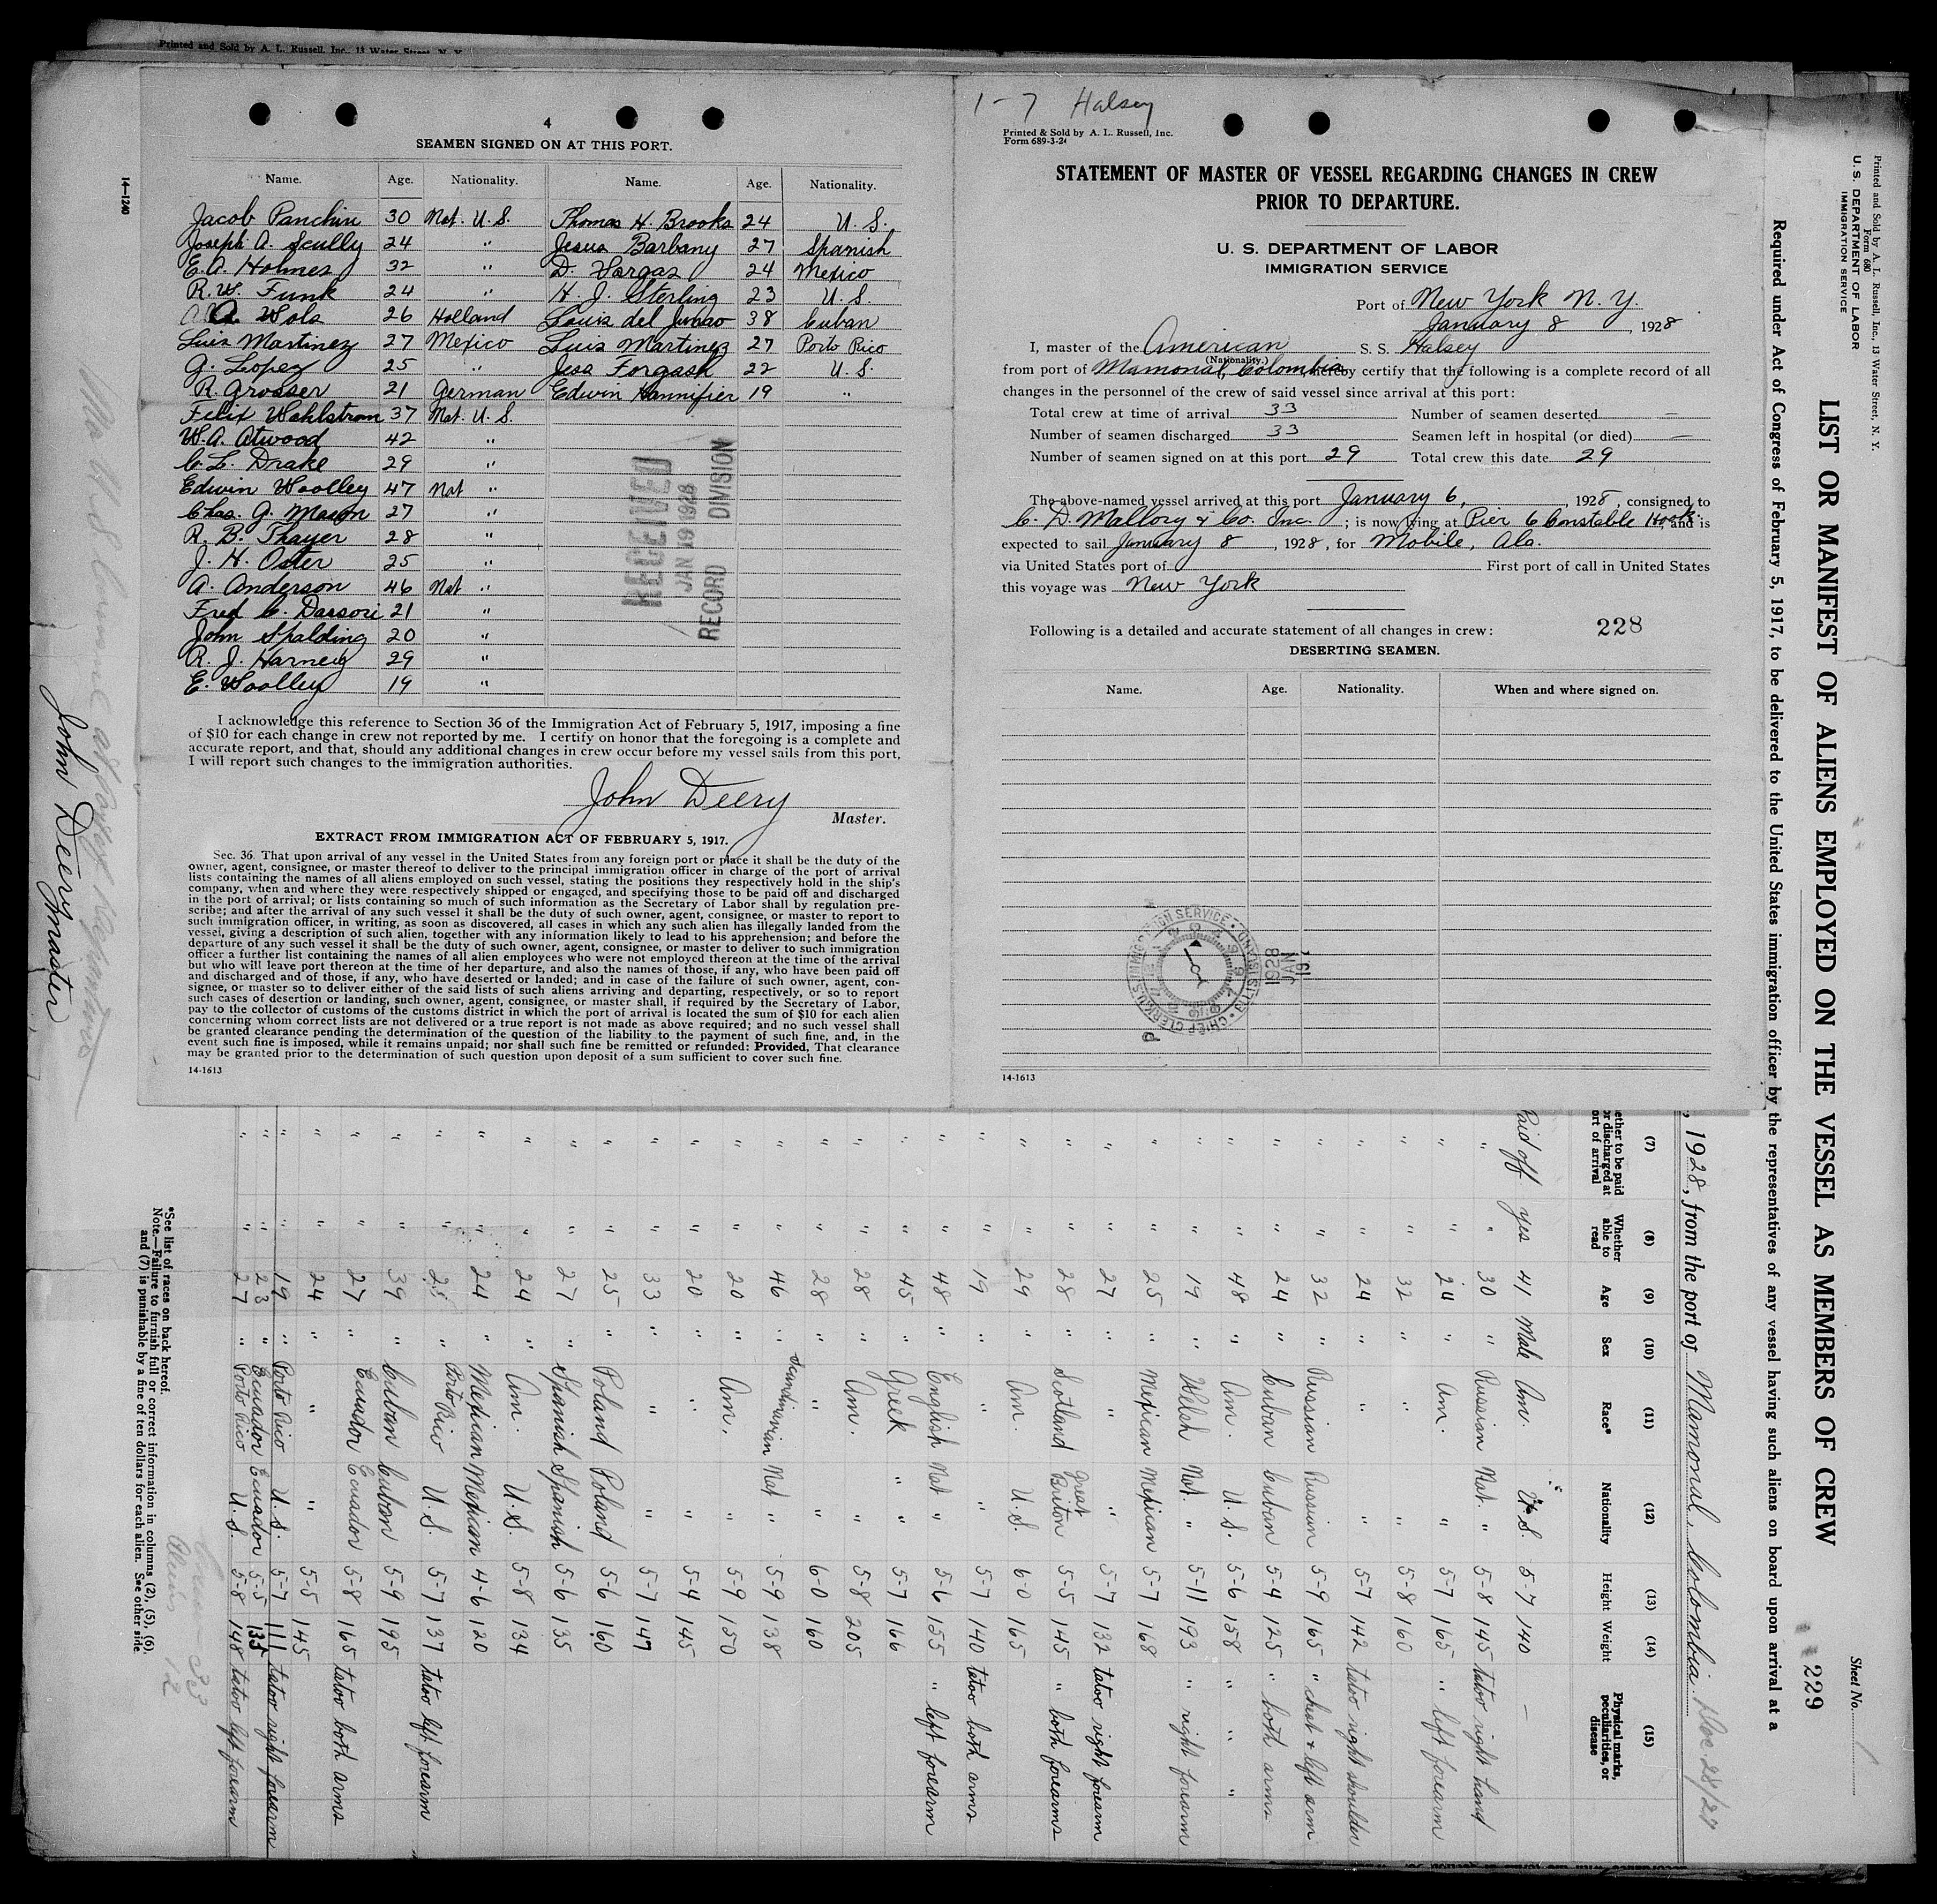 Printed and Sold by A. L. Russell, Inc., 13 Water Street, N. Y.
4
SEAMEN SIGNED ON AT THIS PORT.
14—1240
Name. Age. Nationality. Name. Age. Nationality.
Jacob Panchin 30 Nat. U. S. Thomas H. Brooks 24 U. S.
Joseph A. Scully 24 " Jesus Barbany 27 Spanish
E. A. Holmes 32 " D. Vargas 24 Mexico
R. W. Funk 24 " H. J. Sterling 23 U. S.
A. Wols 26 Holland Louis del Junco 38 Cuban
Luis Martinez 27 Mexico Luis Martinez 27 Porto Rico
G. Lopez 25 " Jess Forgash 22 U. S.
R. Grosser 21 German Edwin Hannifier 19 "
Felix Wahlstrom 37 Nat. U. S.
W. A. Atwood 42 "
C. L. Drake 29 "
Edwin Woolley 47 Nat "
Chas. G. Mason 27 "
R. B. Thayer 28 "
J. H. Oster 25 "
A. Anderson 46 Nat "
Fred C. Dassori 21 "
John Spalding 20 "
R. J. Harneig 29 "
E. Woolley 19 "
RECEIVED
JAN 19 1928
RECORD DIVISION
I acknowledge this reference to Section 36 of the Immigration Act of February 5, 1917, imposing a fine
of $10 for each change in crew not reported by me. I certify on honor that the foregoing is a complete and
accurate report, and that, should any additional changes in crew occur before my vessel sails from this port,
I will report such changes to the immigration authorities.
John Deery
Master.
EXTRACT FROM IMMIGRATION ACT OF FEBRUARY 5, 1917.
Sec. 36. That upon arrival of any vessel in the United States from any foreign port or place it shall be the duty of the
owner, agent, consignee, or master thereof to deliver to the principal immigration officer in charge of the port of arrival
lists containing the names of all aliens employed on such vessel, stating the positions they respectively hold in the ship's
company, when and where they were respectively shipped or engaged, and specifying those to be paid off and discharged
in the port of arrival; or lists containing so much of such information as the Secretary of Labor shall by regulation pre-
scribe; and after the arrival of any such vessel it shall be the duty of such owner, agent, consignee, or master to report to
such immigration officer, in writing, as soon as discovered, all cases in which any such alien has illegally landed from the
vessel, giving a description of such alien, together with any information likely to lead to his apprehension; and before the
departure of any such vessel it shall be the duty of such owner, agent, consignee, or master to deliver to such immigration
officer a further list containing the names of all alien employees who were not employed thereon at the time of the arrival
but who will leave port thereon at the time of her departure, and also the names of those, if any, who have been paid off
and discharged and of those, if any, who have deserted or landed; and in case of the failure of such owner, agent, con-
signee, or master so to deliver either of the said lists of such aliens arriving and departing, respectively, or so to report
such cases of desertion or landing, such owner, agent, consignee, or master shall, if required by the Secretary of Labor,
pay to the collector of customs of the customs district in which the port of arrival is located the sum of $10 for each alien
concerning whom correct lists are not delivered or a true report is not made as above required; and no such vessel shall
be granted clearance pending the determination of the question of the liability to the payment of such fine, and, in the
event such fine is imposed, while it remains unpaid; nor shall such fine be remitted or refunded: Provided, That clearance
may be granted prior to the determination of such question upon deposit of a sum sufficient to cover such fine.
14-1613
John Deery master
1-7 Halsey
Printed & Sold by A. L. Russell, Inc.
Form 689-3-24
STATEMENT OF MASTER OF VESSEL REGARDING CHANGES IN CREW
PRIOR TO DEPARTURE.
U. S. DEPARTMENT OF LABOR
IMMIGRATION SERVICE
Port of New York N. Y.
January 8, 1928
I, master of the American S. S. Halsey
(Nationality.)
from port of Mamonal, Colombia hereby certify that the following is a complete record of all
changes in the personnel of the crew of said vessel since arrival at this port:
Total crew at time of arrival 33 Number of seamen deserted —
Number of seamen discharged 33 Seamen left in hospital (or died) —
Number of seamen signed on at this port 29 Total crew this date 29
The above-named vessel arrived at this port January 6, 1928, consigned to
C. D. Mallory & Co. Inc. ; is now lying at Pier 6 Constable Hook, and is
expected to sail January 8, 1928, for Mobile, Ala.
via United States port of First port of call in United States
this voyage was New York
Following is a detailed and accurate statement of all changes in crew: 228
DESERTING SEAMEN.
Name. Age. Nationality. When and where signed on.
CHIEF CLERK U.S. IMMIGRATION SERVICE ELLIS ISLAND
JAN 19 1928
14-1613
Printed and Sold by A. L. Russell, Inc., 13 Water Street, N. Y.
Form 680
U. S. DEPARTMENT OF LABOR
IMMIGRATION SERVICE
Sheet No. 1
LIST OR MANIFEST OF ALIENS EMPLOYED ON THE VESSEL AS MEMBERS OF CREW
229
Required under Act of Congress of February 5, 1917, to be delivered to the United States immigration officer by the representatives of any vessel having such aliens on board upon arrival at a
, 1928, from the port of Mamonal, Colombia. Dec 28/27
(7) (8) (9) (10) (11) (12) (13) (14) (15)
ether to be paid or discharged at ort of arrival Whether able to read Age Sex Race* Nationality Height Weight Physical marks, peculiarities, or disease
Paid off yes 41 Male Am. U. S. 5-7 140 —
" " 30 " Russian Nat. " 5-8 145 tatoo right hand
" " 24 " Am. " 5-7 165 " left forearm
" " 32 " " " 5-8 160
" " 24 " " " 5-7 142 tatoo right shoulder
" " 32 " Russian Russian 5-9 165 " chest & left arm
" " 24 " Cuban Cuban 5-4 125 " both arms
" " 48 " Am. U. S. 5-6 158 " " "
" " 19 " Welsh Nat. " 5-11 193 " right forearm
" " 25 " Mexican Mexican 5-7 168
" " 27 " " " 5-7 132 tatoo right forearm
" " 28 " Scotland Great Briton 5-5 145 " both forearms
" " 29 " Am. U. S. 6-0 165
" " 19 " " " 5-7 140 tatoo both arms
" " 48 " English Nat " 5-6 155 " left forearm
" " 45 " Greek " " 5-7 166
" " 28 " Am. " 5-8 205
" " 28 " " " 6-0 160
" " 46 " Scandinavian Nat " 5-9 138
" " 20 " Am. " 5-9 150
" " 20 " " " 5-4 145
" " 33 " " " 5-7 147
" " 25 " Poland Poland 5-6 160
" " 27 " Spanish Spanish 5-6 135
" " 24 " Am. U. S. 5-8 134
" " 24 " Mexican Mexican 4-6 120
" " 25 " Porto Rico U. S. 5-7 137 tatoo left forearm
" " 39 " Cuban Cuban 5-9 195
" " 27 " Ecuador Ecuador 5-8 165 tatoo both arms
" " 24 " " " 5-5 145
" " 19 " Porto Rico U. S. 5-7 111 tatoo right forearm
" " 23 " Ecuador Ecuador 5-5 135
" " 27 " Porto Rico U. S. 5-8 148 tatoo left forearm
*See list of races on back hereof.
Note.—Failure to furnish full or correct information in columns (2), (5), (6),
and (7) is punishable by a fine of ten dollars for each alien. See other side.
Crew 33
Aliens 12